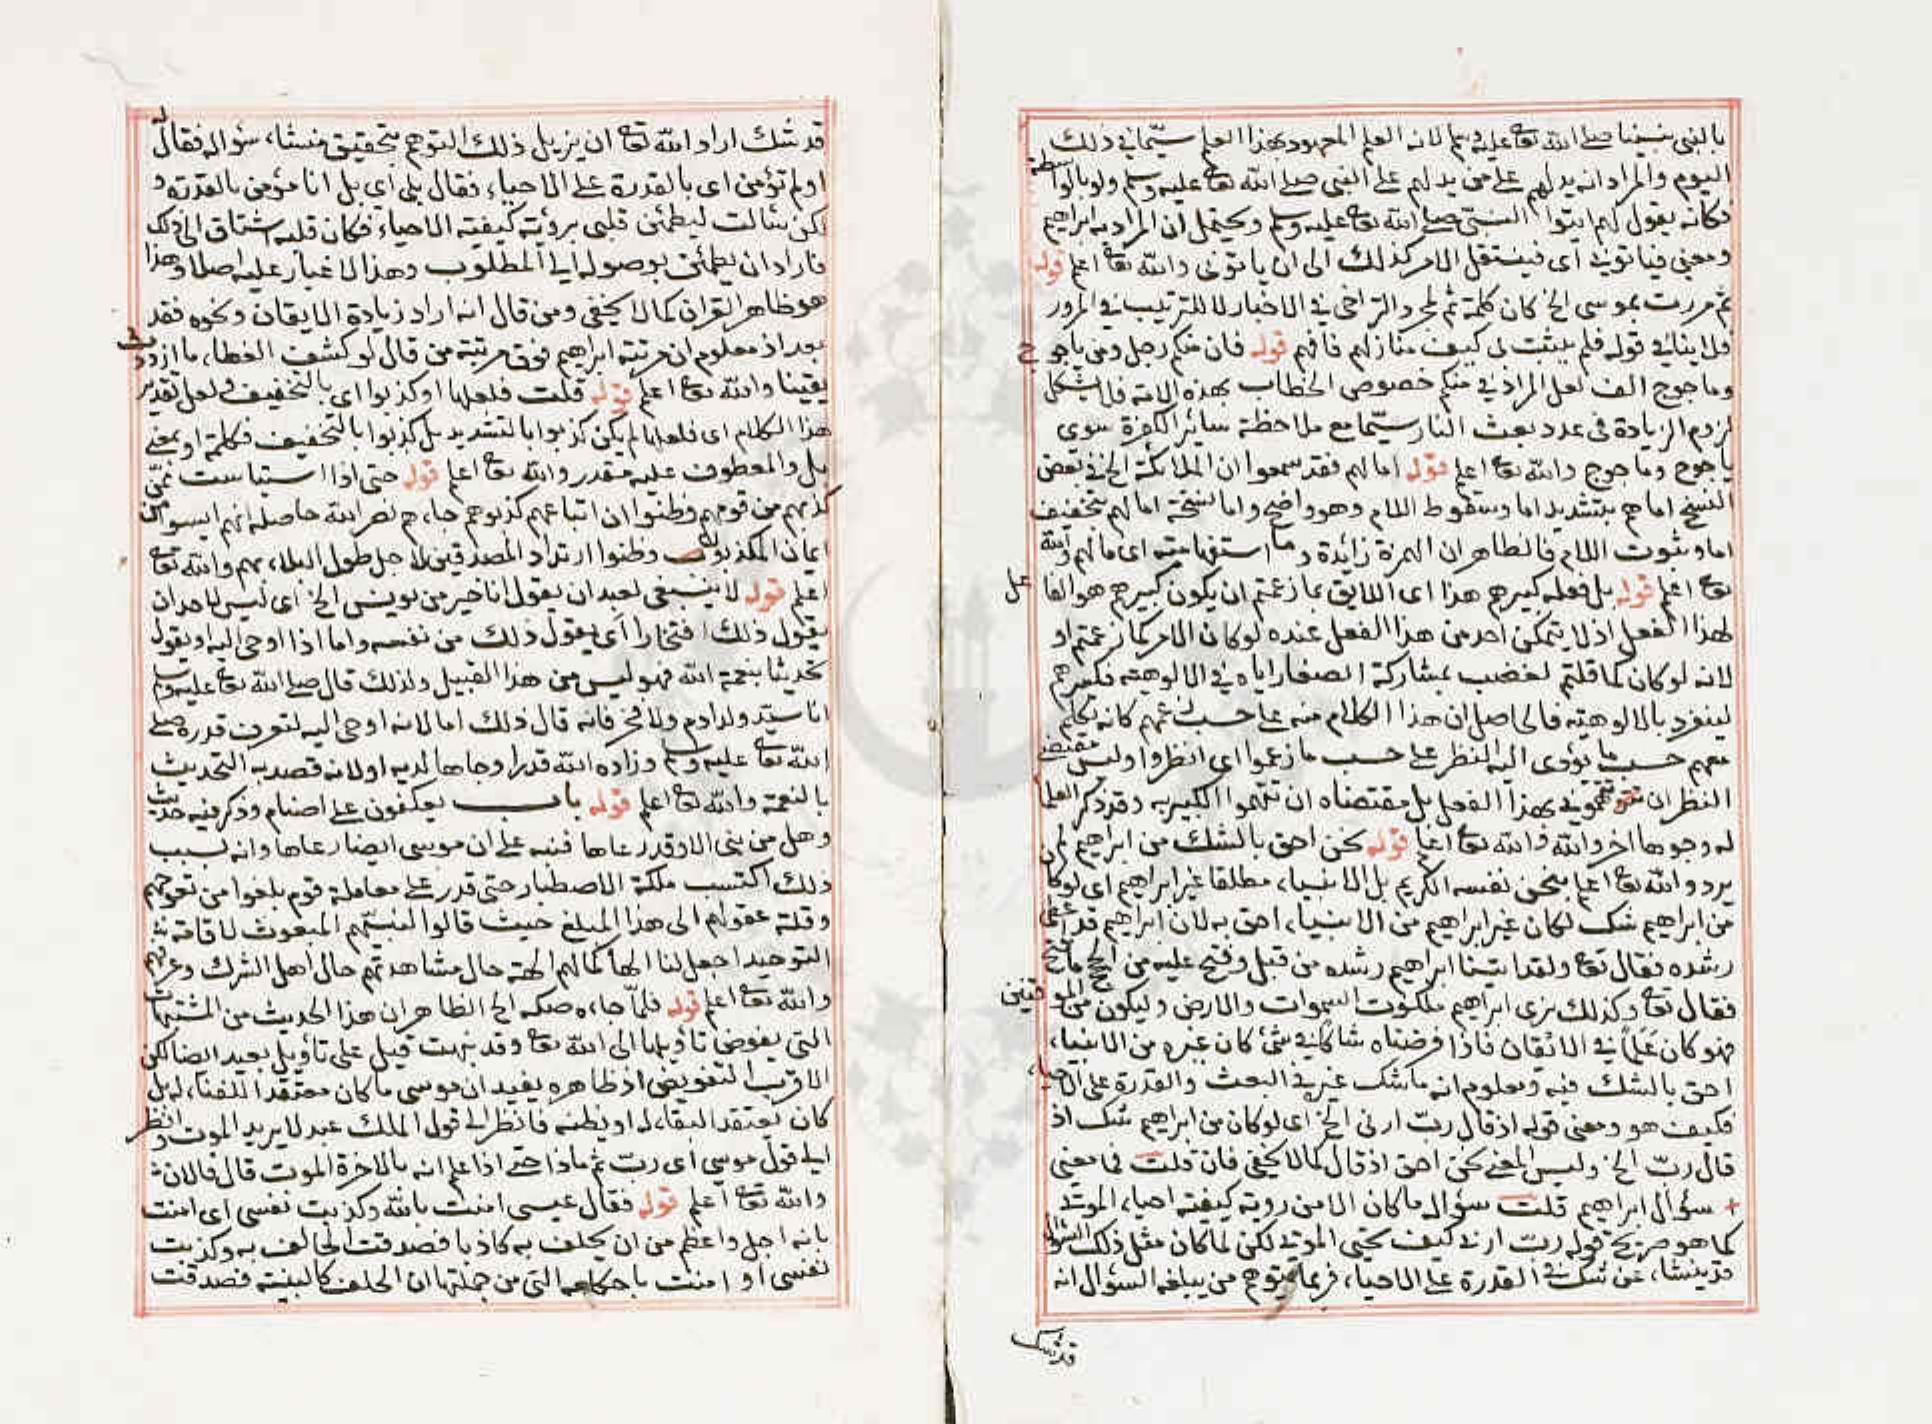 بالنبي نبينا صلى الله تعا عليه وسلم لانه العلم المعهود بهذا العلم سيما في ذلك
اليوم والمراد انه يدلهم على من يدلهم على النبي صلى الله تعا عليه وسلم ولو بالواسطة
فكانه يقول لهم ايتوا النبي صلى الله تعا عليه وسلم ويحتمل ان المراد به ابراهيم
ومعنى فياتوني اى فينتقل الامر كذلك الى ان ياتونى والله تعا اعلم قوله
ثم مررت بموسى الخ كان كلمة ثم لمجرد التراخى في الاخبار لا للترتيب في المرور
فلا ينافي قوله فلم يثبت لى كيف منازلهم فافهم قوله فان منكم رجل ومن ياجوج
وماجوج الف لعل المراد في منكم خصوص الخطاب بهذه الامة فلا يشكل
لزوم الزيادة فى عدد بعث النار سيما مع ملاحظة سائر الكفرة سوى
ياجوج وماجوج والله تعا اعلم قوله اما لهم فقد سمعوا ان الملائكة الخ في بعض
النسخ اما هم بتشديد اما وسقوط اللام وهو واضح واما نسخة اما لهم بتخفيف
اما وثبوت اللام فالظاهر ان الهمزة زائدة وما استفهامية اى ما لهم والله
تعا اعلم قوله بل فعله كبيرهم هذا اى اللايق بما زعمتم ان يكون كبيرهم هو الفاعل
لهذا الفعل اذ لا يتمكن احد من هذا الفعل عنده لو كان الامر كما زعمتم او
لانه لو كان كما قلتم لغضب بمشاركة الصغار اياه في الالوهية فكسرهم
لينفرد بالالوهية فالحاصل ان هذا الكلام منه على حسب زعمهم كانه تكلم
معهم حسب ما يؤدى اليه النظر على حسب ما زعموا اى انظروا وليس مقتضى
النظر ان تتهمونى بهذا الفعل بل مقتضاه ان تتهموا الكبير به وقد ذكر العلما
له وجوها اخر والله تعا اعلم قوله نحن احق بالشك من ابراهيم لم
يرد والله تعا اعلم بنحن نفسه الكريم بل الانبياء مطلقا غير ابراهيم اى لو كان
من ابراهيم شك لكان غير ابراهيم من الانبياء احق به لان ابراهيم قد اعطى
رشده فقال تعا ولقد اتينا ابراهيم رشده من قبل وفتح عليه من ما فتح
فقال تعا وكذلك نرى ابراهيم ملكوت السموات والارض وليكون من الموقنين
فهو كان علما في الاتقان فاذا فرضناه شاكا في شئ كان غيره من الانبياء
احق بالشك فيه ومعلوم انه ما شك غيره في البعث والقدرة على الاحياء
فكيف هو ومعنى قوله اذ قال رب ارنى الخ اى لو كان من ابراهيم شك اذ
قال رب الخ وليس المعنى نحن احق اذ قال كما لا يخفى فان قلت فما معنى
سؤال ابراهيم قلت سؤاله ما كان الا من روية كيفية احياء الموتى
كما هو صريح قوله رب ارنى كيف تحيي الموتى لكن لما كان مثل ذلك السؤال
قد ينشاء عن شك في القدرة على الاحياء فربما يتوهم من يبلغه السؤال انه
قد شك
قد شك اراد الله تعا ان يزيل ذلك التوهم بتحقيق منشاء سؤاله فقال
اولم تؤمن اى بالقدرة على الاحياء فقال بلى اى بل انا مؤمن بالقدرة و
لكن سالت ليطمئن قلبى برؤية كيفية الاحياء فكان قلبه اشتاق الى ذلك
فاراد ان يطمئن بوصوله الى المطلوب وهذا لا غبار عليه اصلا وهذا
هو ظاهر القران كما لا يخفى ومن قال انه اراد زيادة الايقان ونحوه فقد
بعد اذ معلوم ان مرتبة ابراهيم فوق مرتبة من قال لو كشف الغطاء ما ازددت
يقينا والله تعا اعلم قوله قلت فلعلها او كذبوا اى بالتخفيف ولعل تقدير
هذا الكلام اى فلعلها لم يكن كذبوا بالتشديد بل كذبوا بالتخفيف فكلمة او بمعنى
بل والمعطوف عليه مقدر والله تعا اعلم قوله حتى اذا استياست ممن
كذبهم من قومهم وظنوا ان اتباعهم كذبوهم جاءهم نصر الله حاصله انهم ايسوا من
ايمان المكذبين وظنوا ارتداد المصدقين لاجل طول البلاء بهم والله تعا
اعلم قوله لا ينبغى لعبد ان يقول انا خير من يونس الخ اى ليس لاحد ان
يقول ذلك افتخارا اى يقول ذلك من نفسه واما اذا اوحى اليه او يقول
تحديثا بنعمة الله فهو ليس من هذا القبيل ولذلك قال صلى الله تعا عليه وسلم
انا سيد ولد ادم ولا فخر فانه قال ذلك اما لانه اوحى اليه لتعرف قدره صلى
الله تعا عليه وسلم وزاده الله قدرا وجاها لديه او لانه قصد به التحديث
بالنعمة والله تعا اعلم قوله باب يعكفون على اصنام وذكر فيه حديث
وهل من نبى الا وقد رعاها فنبه على ان موسى ايضا رعاها وانه بسبب
ذلك اكتسب ملكة الاصطبار حتى قدر على معاملة قوم بلغوا من تعوجهم
وقلة عقولهم الى هذا المبلغ حيث قالوا لنبيهم المبعوث لاقامة
التوحيد اجعل لنا الها كما لهم الهة حال مشاهدتهم حال اهل الشرك وغرقهم
والله تعا اعلم قوله فلما جاءه صكه الخ الظاهر ان هذا الحديث من المشتبهات
التى يفوض تاويلها الى الله تعا وقد نبهت قبل على تاويل بعيد ايضا لكن
الاقرب التفويض اذ ظاهره يفيد ان موسى ما كان معتقدا للفناء له بل
كان يعتقد البقاء له او يظنه فانظر الى قول الملك عبد لا يريد الموت وانظر
الى قول موسى اى رب ثم ماذا حتى اذا علم انه بالاخرة الموت قال فالان
والله تعا اعلم قوله فقال عيسى امنت بالله وكذبت نفسى اى امنت
بانه اجل واعظم من ان يحلف به كاذبا فصدقت الحالف به وكذبت
نفسى او امنت باحكامه التى من جملتها ان الحلف كالبينة فصدقت